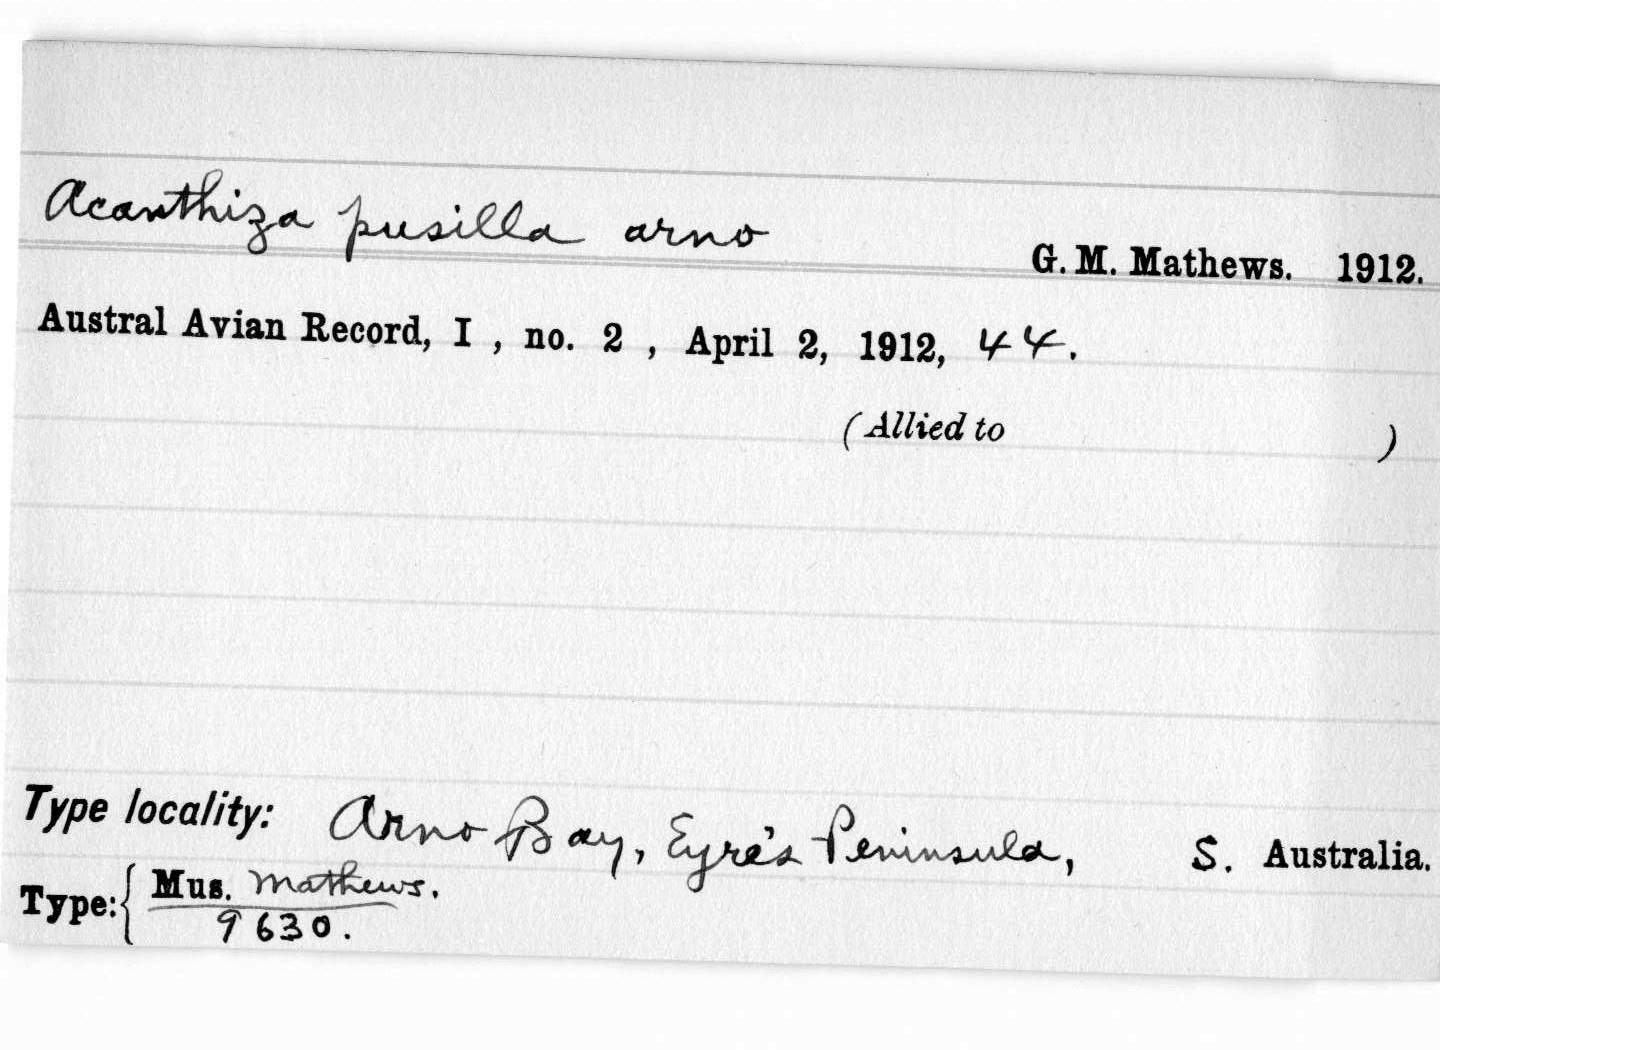 Acanthiza pusilla arno
G. M. Mathews. 1912.
Austral Avian Record, I , no. 2 , April 2, 1912, 44.
(Allied to )
Type locality: Arno Bay, Eyre's Peninsula, S. Australia.
Type: { Mus. Mathews.
9630.